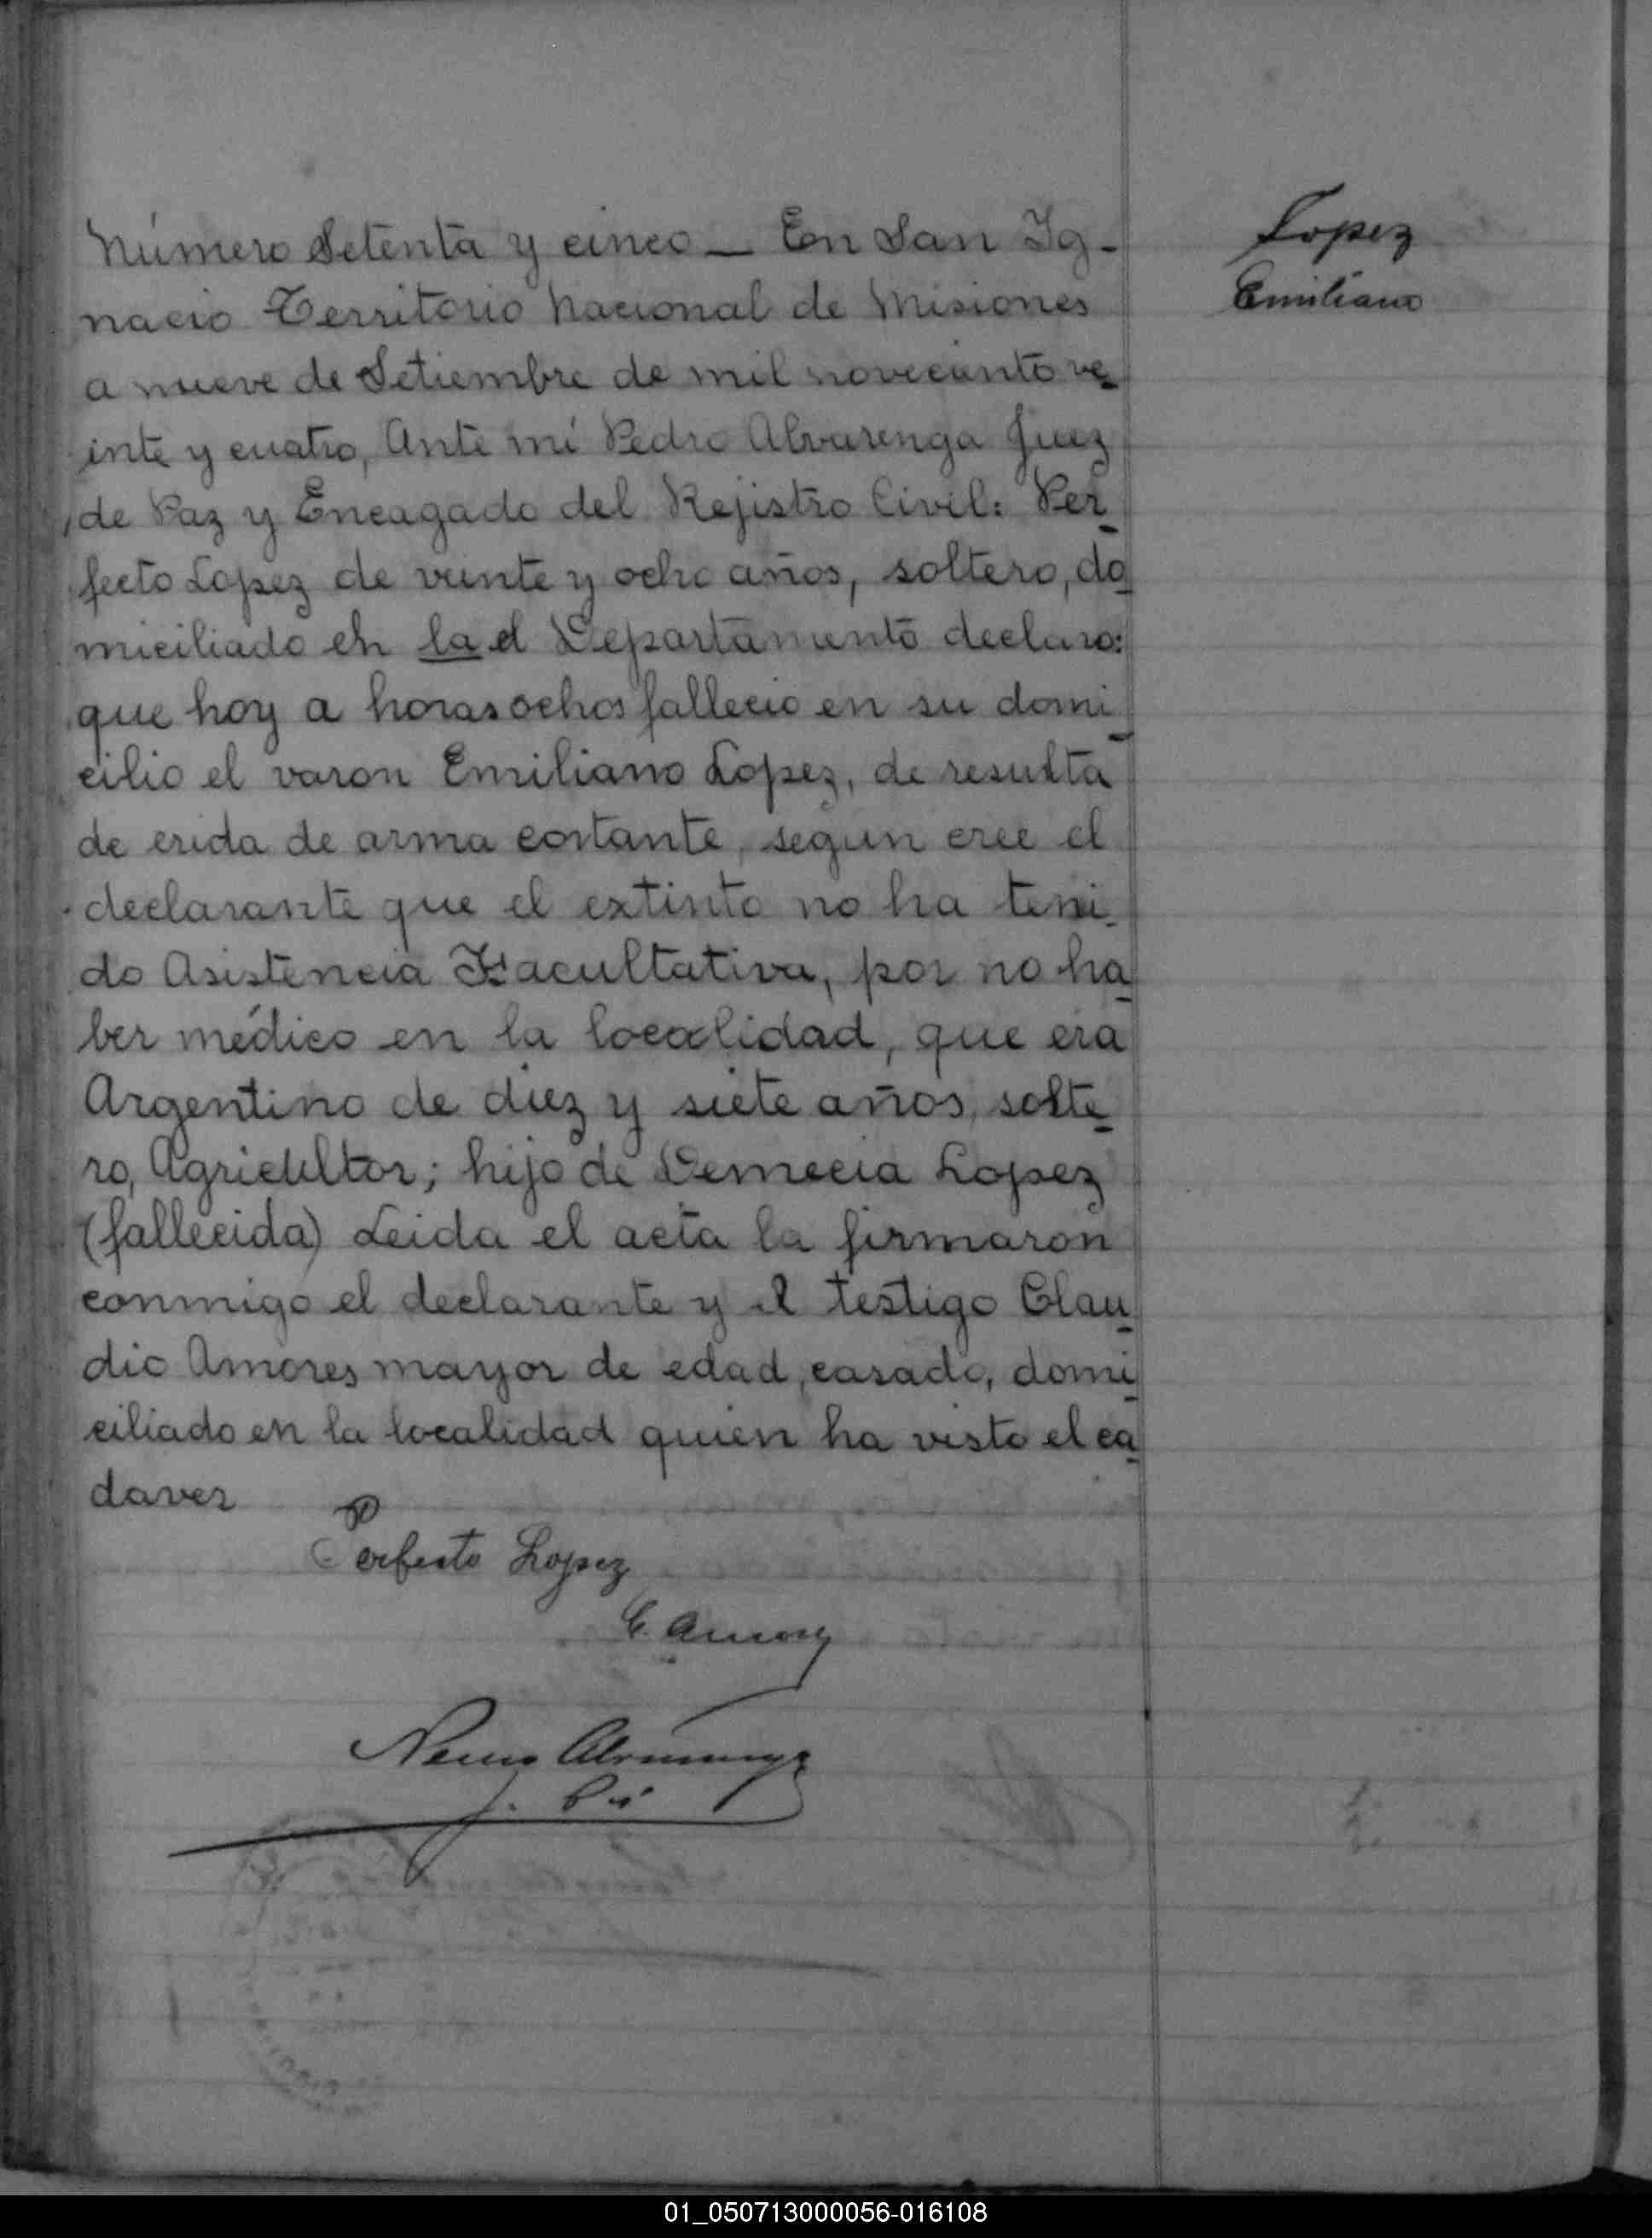 Número Setenta y cinco — En San Ig-
nacio Territorio Nacional de Misiones
a nueve de Setiembre de mil novecento ve
inte y cuatro, Ante mí Pedro Alvarenga Juez
de Paz y Encagado del Rejistro Civil: Per
fecto Lopez de veinte y ocho años, soltero, do
miciliado en la el Departamento declaro:
que hoy a horas ochos fallecio en su domi
cilio el varon Emiliano Lopez, de resulta
de erida de arma cortante, segun cree el
declarante que el extinto no ha teni
do Asistencia Facultativa, por no ha
ber médico en la localidad, que era
Argentino de diez y siete años, solte
ro, Agricultor; hijo de Demecia Lopez
(fallecida) Leida el acta la firmaron
conmigo el declarante y el testigo Clau
dio Amores mayor de edad, casado, domi
ciliado en la localidad quien ha visto el ca
daver
Perfecto Lopez
C. Amores
Alvarenga
Lopez
Emiliano
01_050713000056-016108